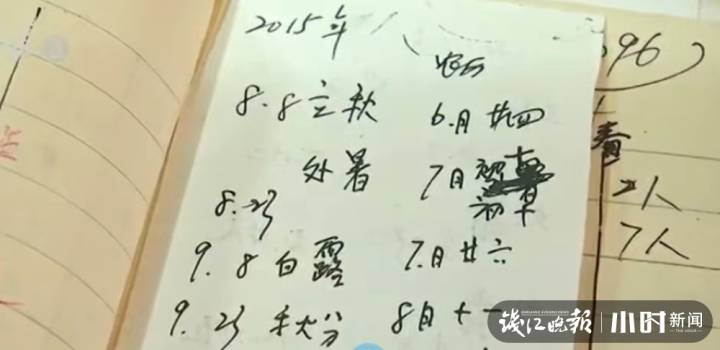 2015年
96)
8.8 立秋 6月廿四
处暑 7月初十
8.23
2人
9.8 白露 7月廿六
7人
9.23 秋分 8月十一
钱江晚报 | 小时新闻